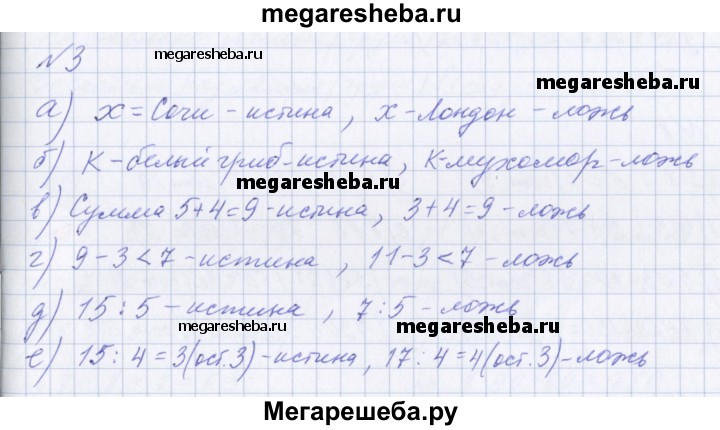 megaresheba.ru
№3
megaresheba.ru
megaresheba.ru
а) x = Сочи - истина, x - Лондон - ложь
б) К - белый гриб - истина, К - мухомор - ложь
megaresheba.ru
в) Сумма 5+4=9 - истина, 3+4=9 - ложь
г) 9-3<7 - истина, 11-3<7 - ложь
д) 15:5 - истина, 7:5 - ложь
megaresheba.ru
megaresheba.ru
е) 15:4=3(ост.3) - истина, 17:4=4(ост.3) - ложь
Мегарешеба.ру